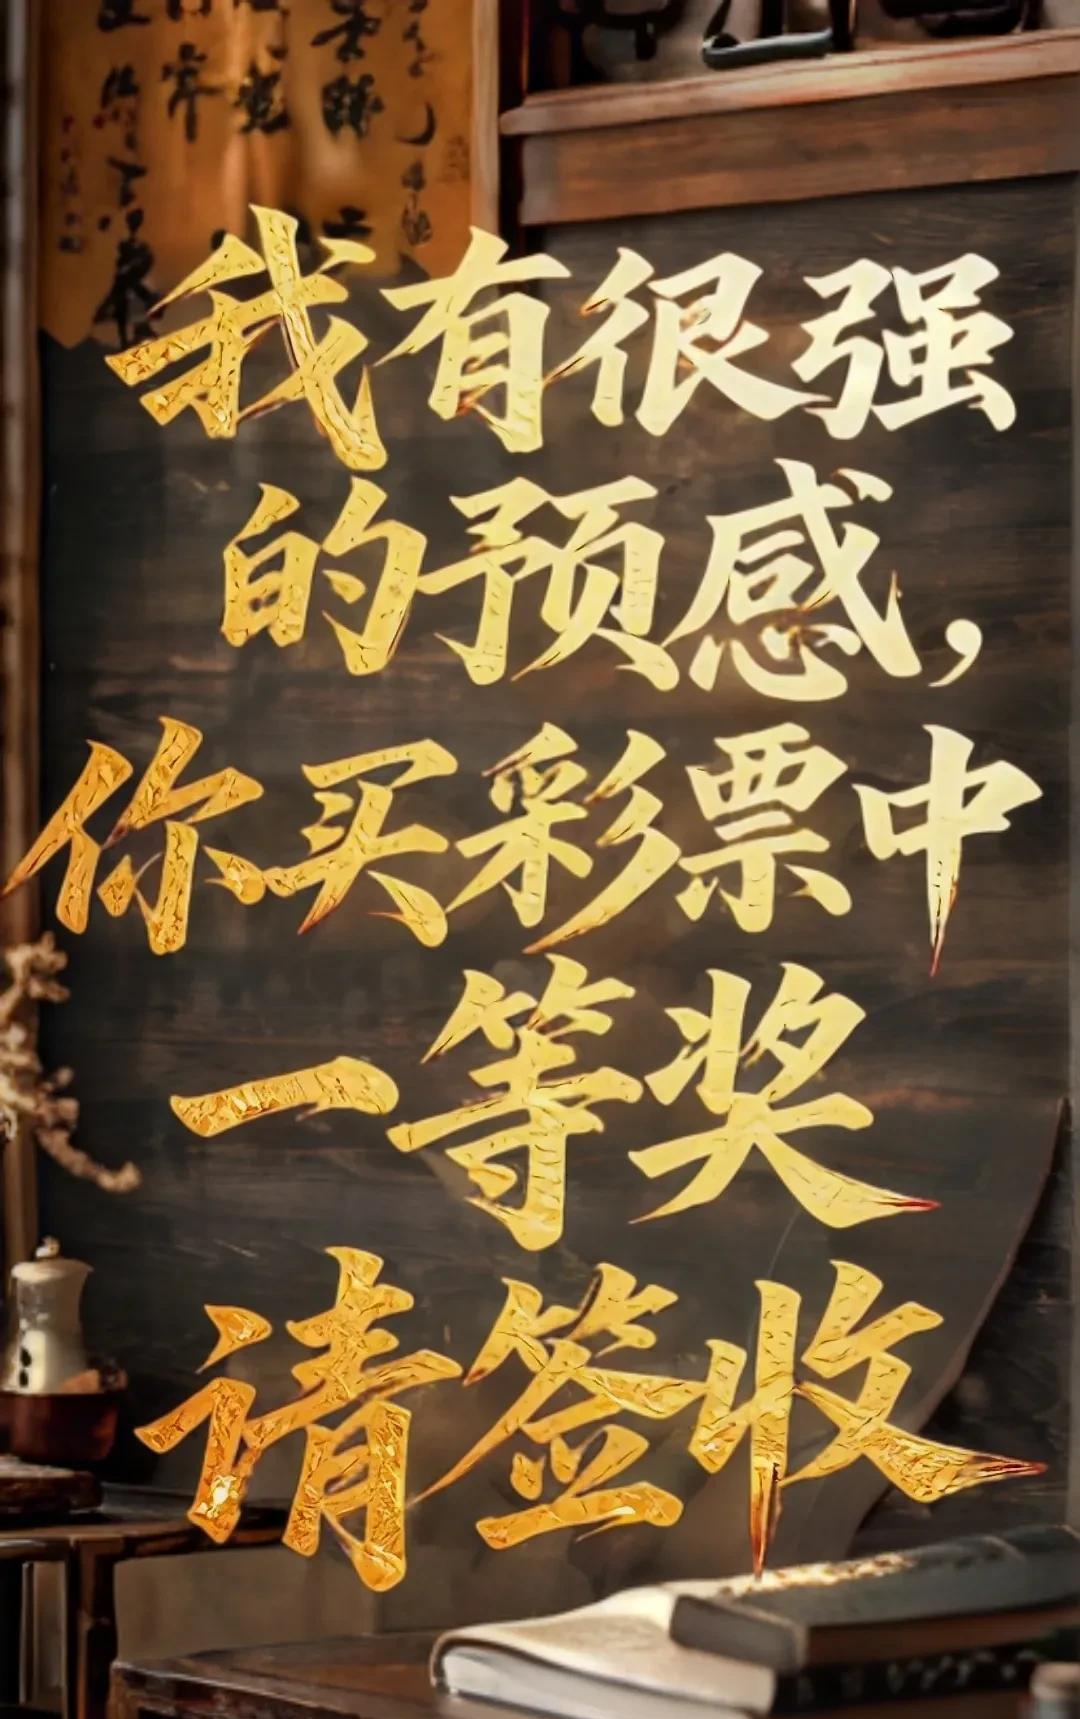 我有很强
的预感,
你买彩票中
一等奖
请签收